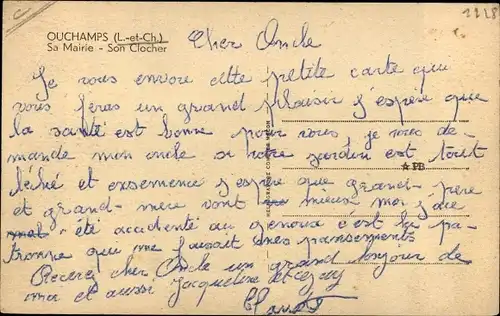 OUCHAMPS (L.-et-Ch.)
Sa Mairie - Son Clocher
1118
Cher Oncle
Je vous envore cette petite carte qui
vous feras un grand plaisir j'espère que
la santé est bonne pour vous, je vous de-
mande mon oncle si votre jardin est tout
béché et ensemence j'espère que grand-père
et grand-mère vont mieux moi j'ai
été accidenté au genoux c'est la pa-
tronne qui me faisait mes pansements
Recevez cher Oncle un grand bonjour de
moi et aussi Jacqueline et
Claude
★ PB